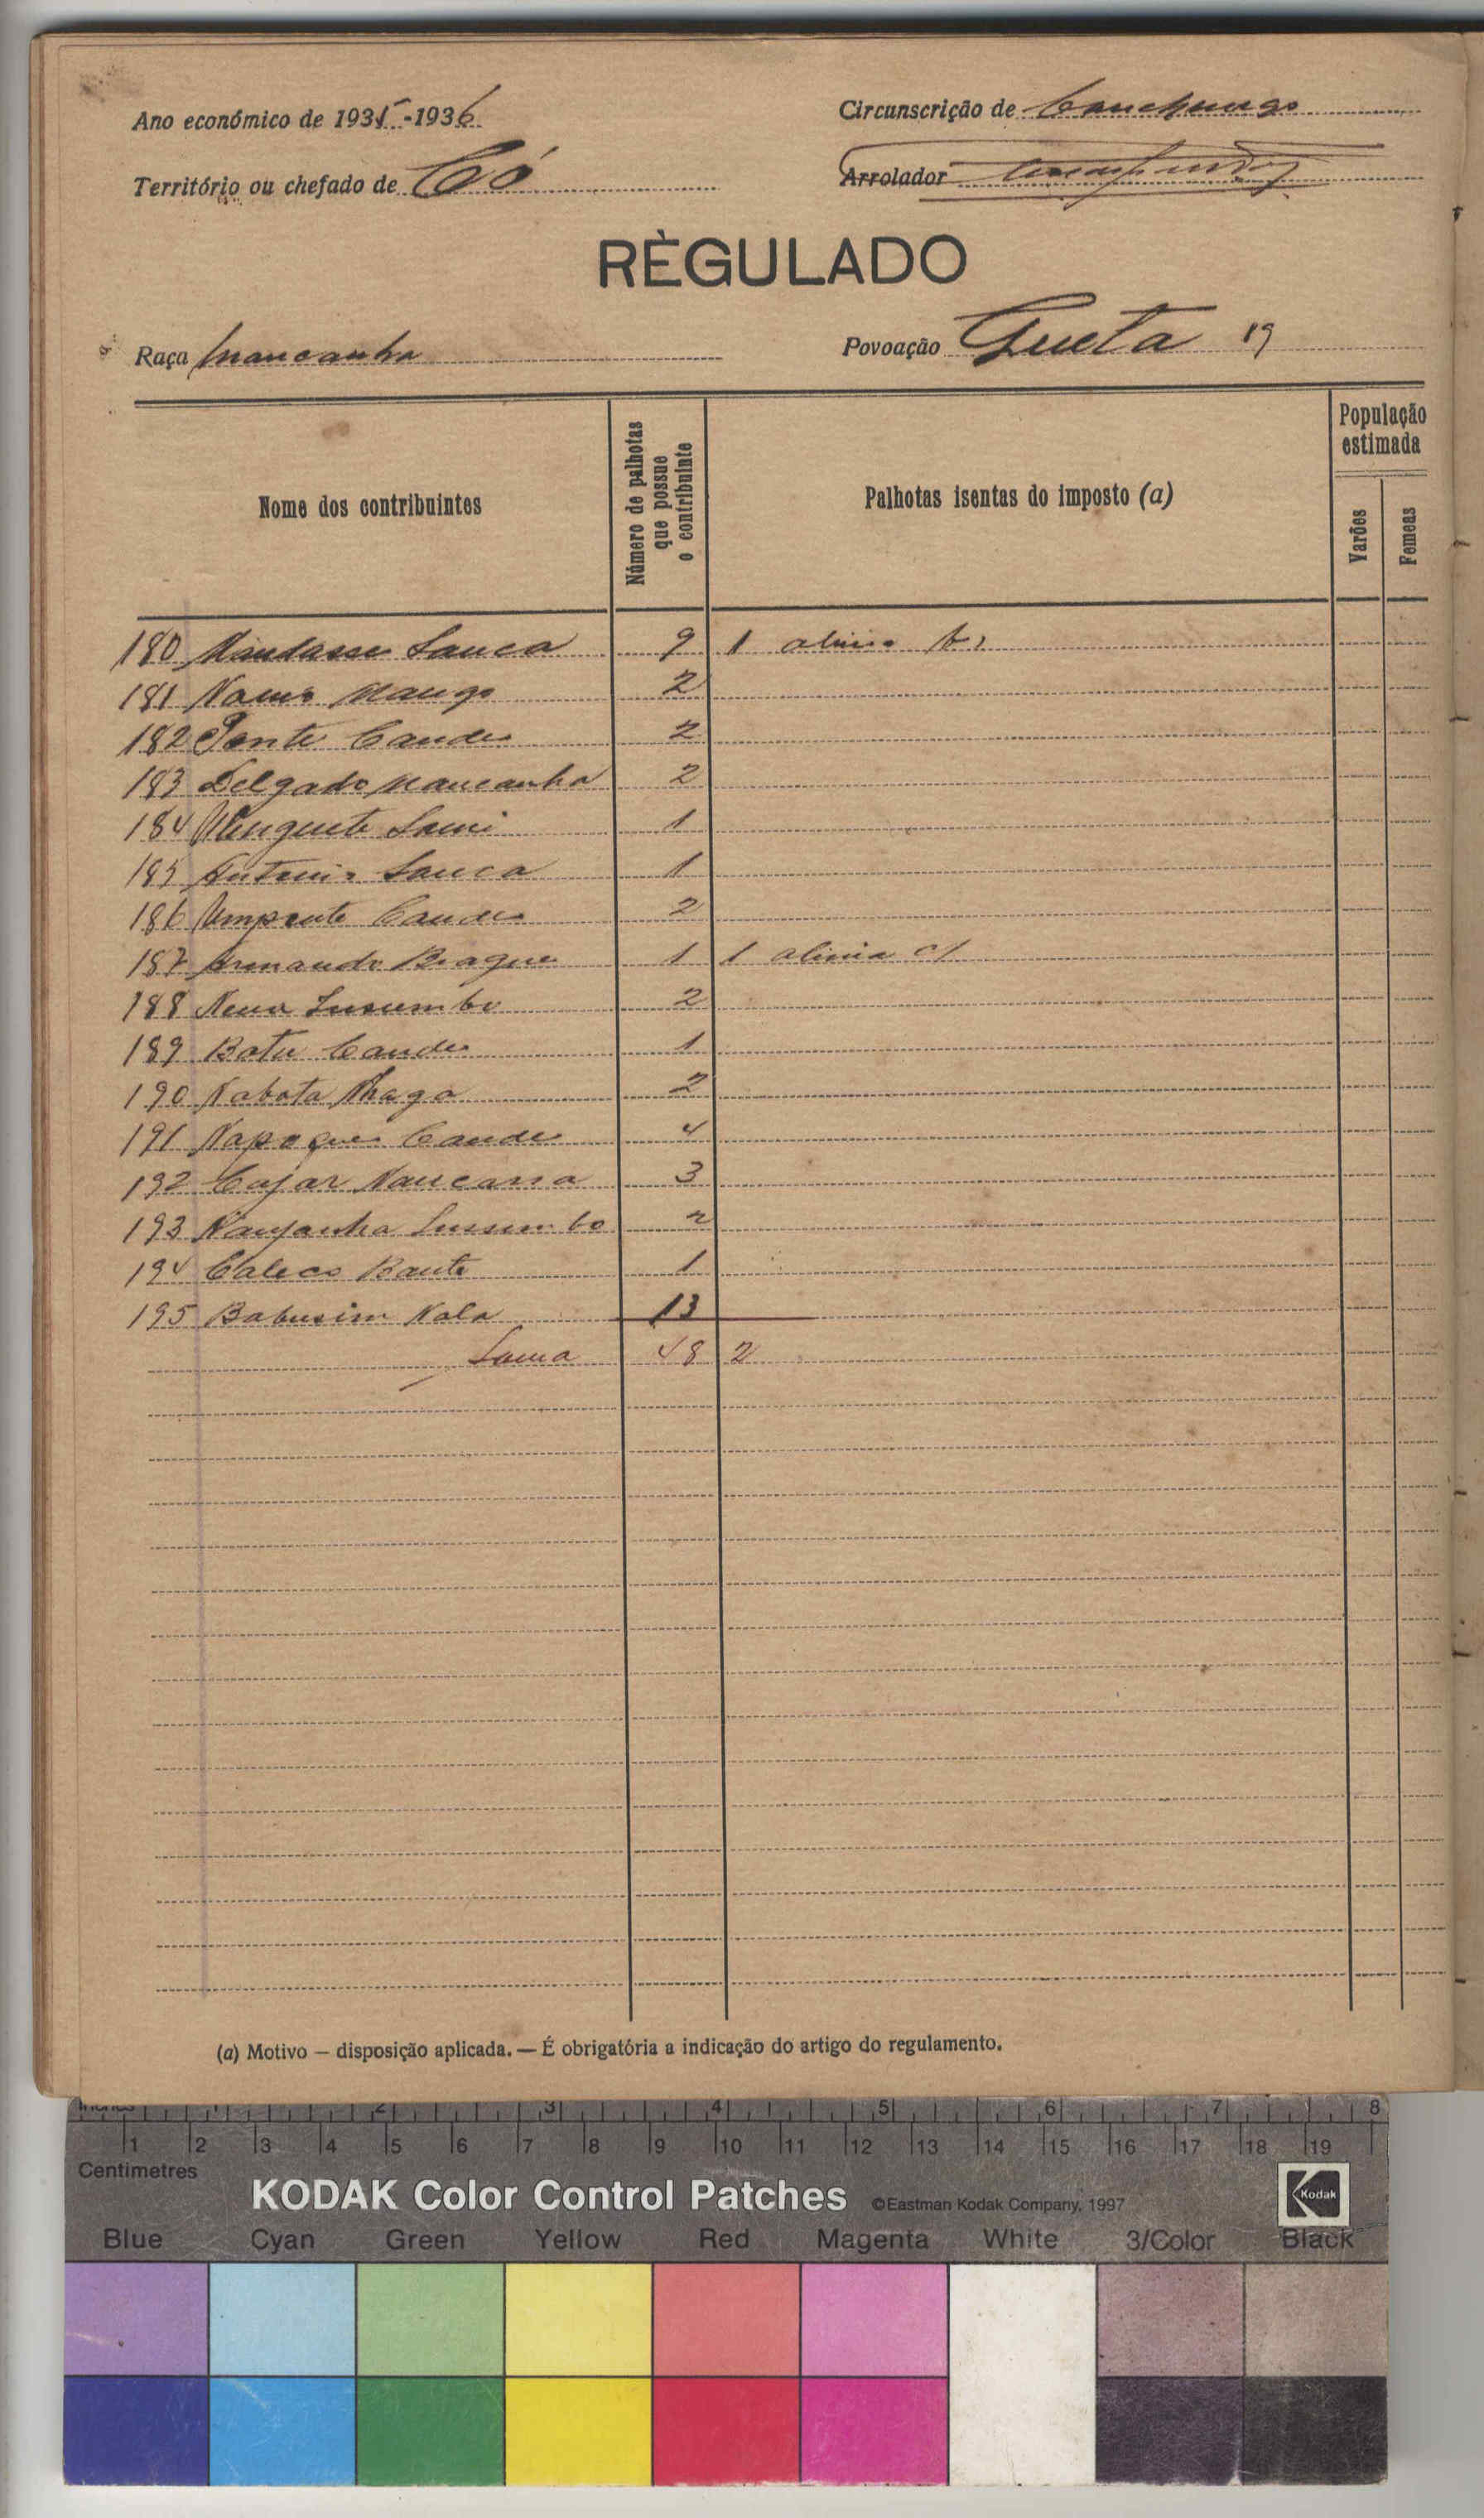 Ano económico de 1935-1936
Circunscrição de Canchungo
Território ou chefado de Có
Arrolador
RÈGULADO
Raça Mancanha
Povoação Gueta 19
Nome dos contribuintes
Número de palhotas que possue o contribuinte
Palhotas isentas do imposto (a)
População estimada
Varões
Femeas
180 Mandasse Sanca 9 1 alinia b)
181 Naurs Mango 2
182 Ponte Cande 2
183 Delgado Mancanha 2
184 Ulinguite Sami 1
185 Antonio Sanca 1
186 Umpente Cande 2
187 Armando Biague 1 1 alinia c)
188 Neua Lussumbo 2
189 Batu Cande 1
190 Nabota Nhaga 2
191 Napoque Cande 4
192 Cajar Naucassa 3
193 Nanjanha Lussumbo 2
194 Caleco Bante 1
195 Babusim Nala 13
Soma 48 2
(a) Motivo — disposição aplicada. — É obrigatória a indicação do artigo do regulamento.
Inches 1 2 3 4 5 6 7 8
1 2 3 4 5 6 7 8 9 10 11 12 13 14 15 16 17 18 19
Centimetres
KODAK Color Control Patches ©Eastman Kodak Company, 1997 Kodak
Blue Cyan Green Yellow Red Magenta White 3/Color Black